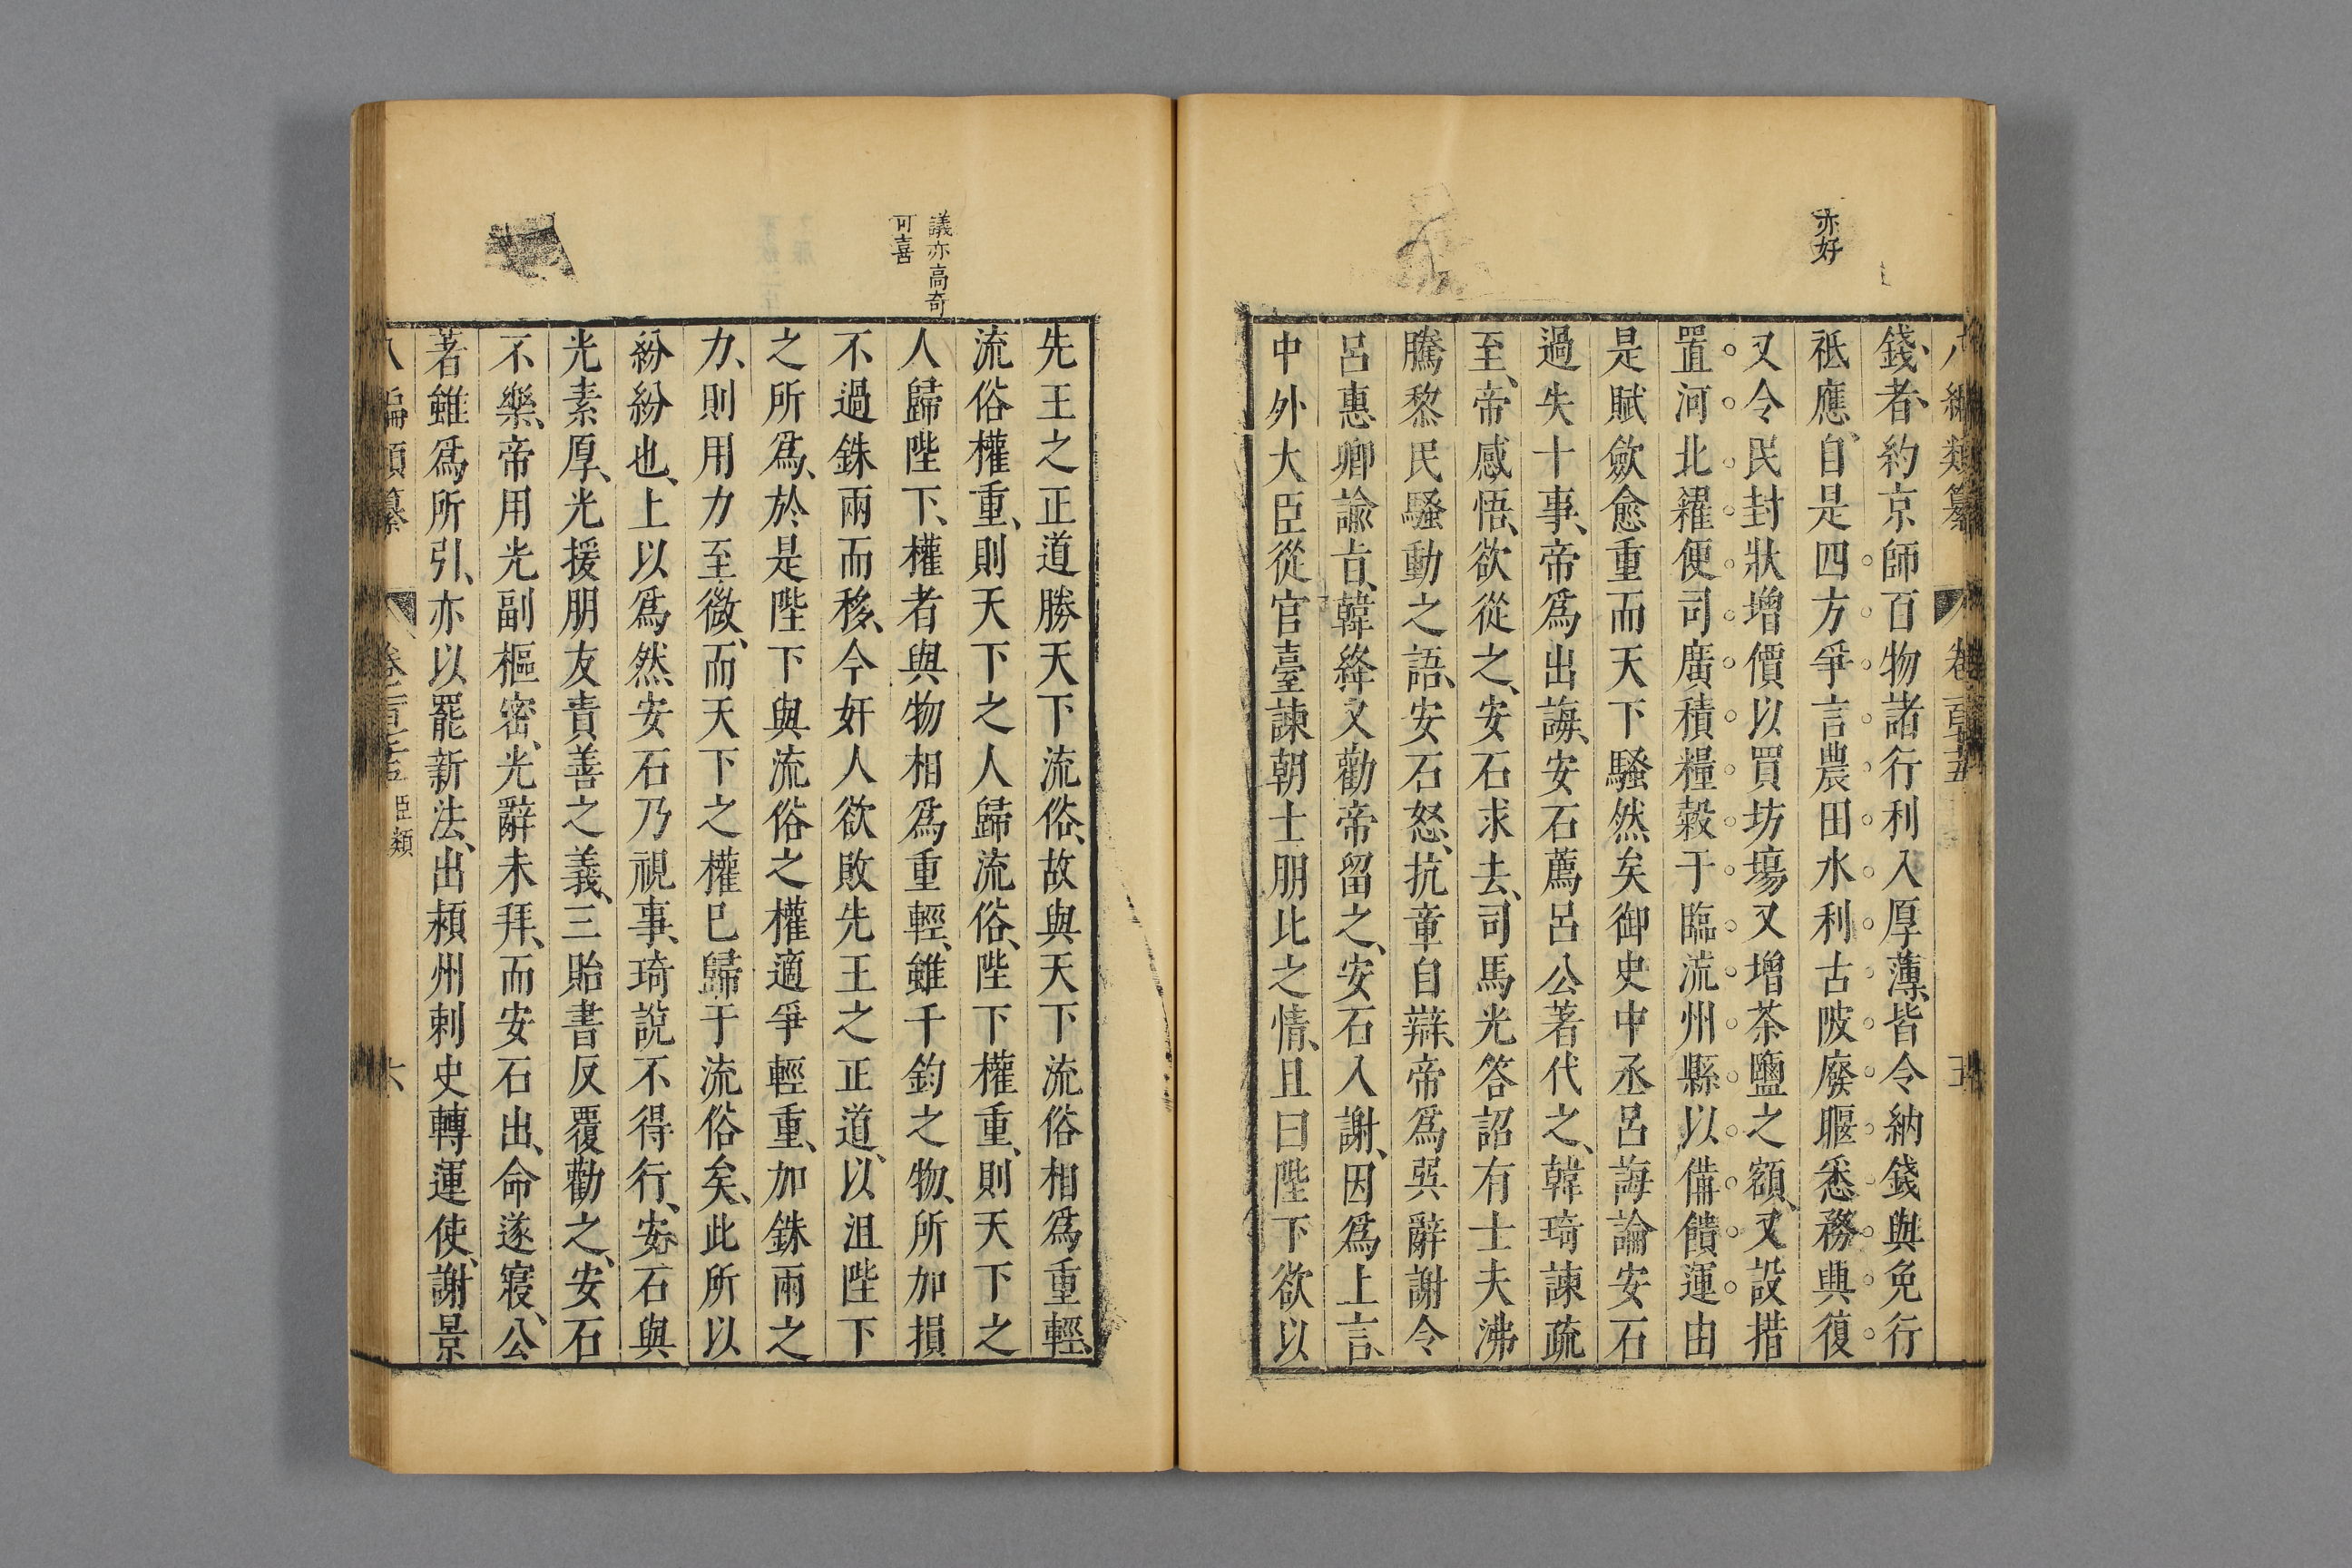 亦好
錢、者、約京師百物諸行利入厚薄、皆令納錢與免行
祗應、自是四方爭言農田水利古陂廢堰悉務興復
又令民封狀增價以買坊塲又增茶鹽之額、又設措
置河北糴便司廣積糧穀于臨流州縣以備饋運由
是賦斂愈重而天下騷然矣御史中丞呂誨論安石
過失十事、帝爲出誨、安石薦呂公著代之、韓琦諫疏
至、帝感悟、欲從之、安石求去、司馬光答詔有士夫沸
騰黎民騷動之語、安石怒、抗章自辯、帝爲巽辭謝令
呂惠卿諭㫖、韓絳又勸帝留之、安石入謝、因爲上言、
中外大臣從官臺諫朝士朋比之情、且曰陛下欲以
議亦高奇
可喜
先王之正道勝天下流俗、故與天下流俗相爲重輕、
流俗權重、則天下之人歸流俗、陛下權重、則天下之
人歸陛下、權者與物相爲重輕、雖千鈞之物、所加損
不過銖兩而移、今奸人欲敗先王之正道、以沮陛下
之所爲、於是陛下與流俗之權適爭輕重、加銖兩之
力、則用力至微、而天下之權已歸于流俗矣、此所以
紛紛也、上以爲然安石乃視事、琦說不得行、安石與
光素厚、光援朋友責善之義、三貽書反覆勸之、安石
不樂、帝用光副樞密、光辭未拜、而安石出、命遂寢、公
著雖爲所引、亦以罷新法、出潁州刺史轉運使、謝景
八編類纂
臣類
六